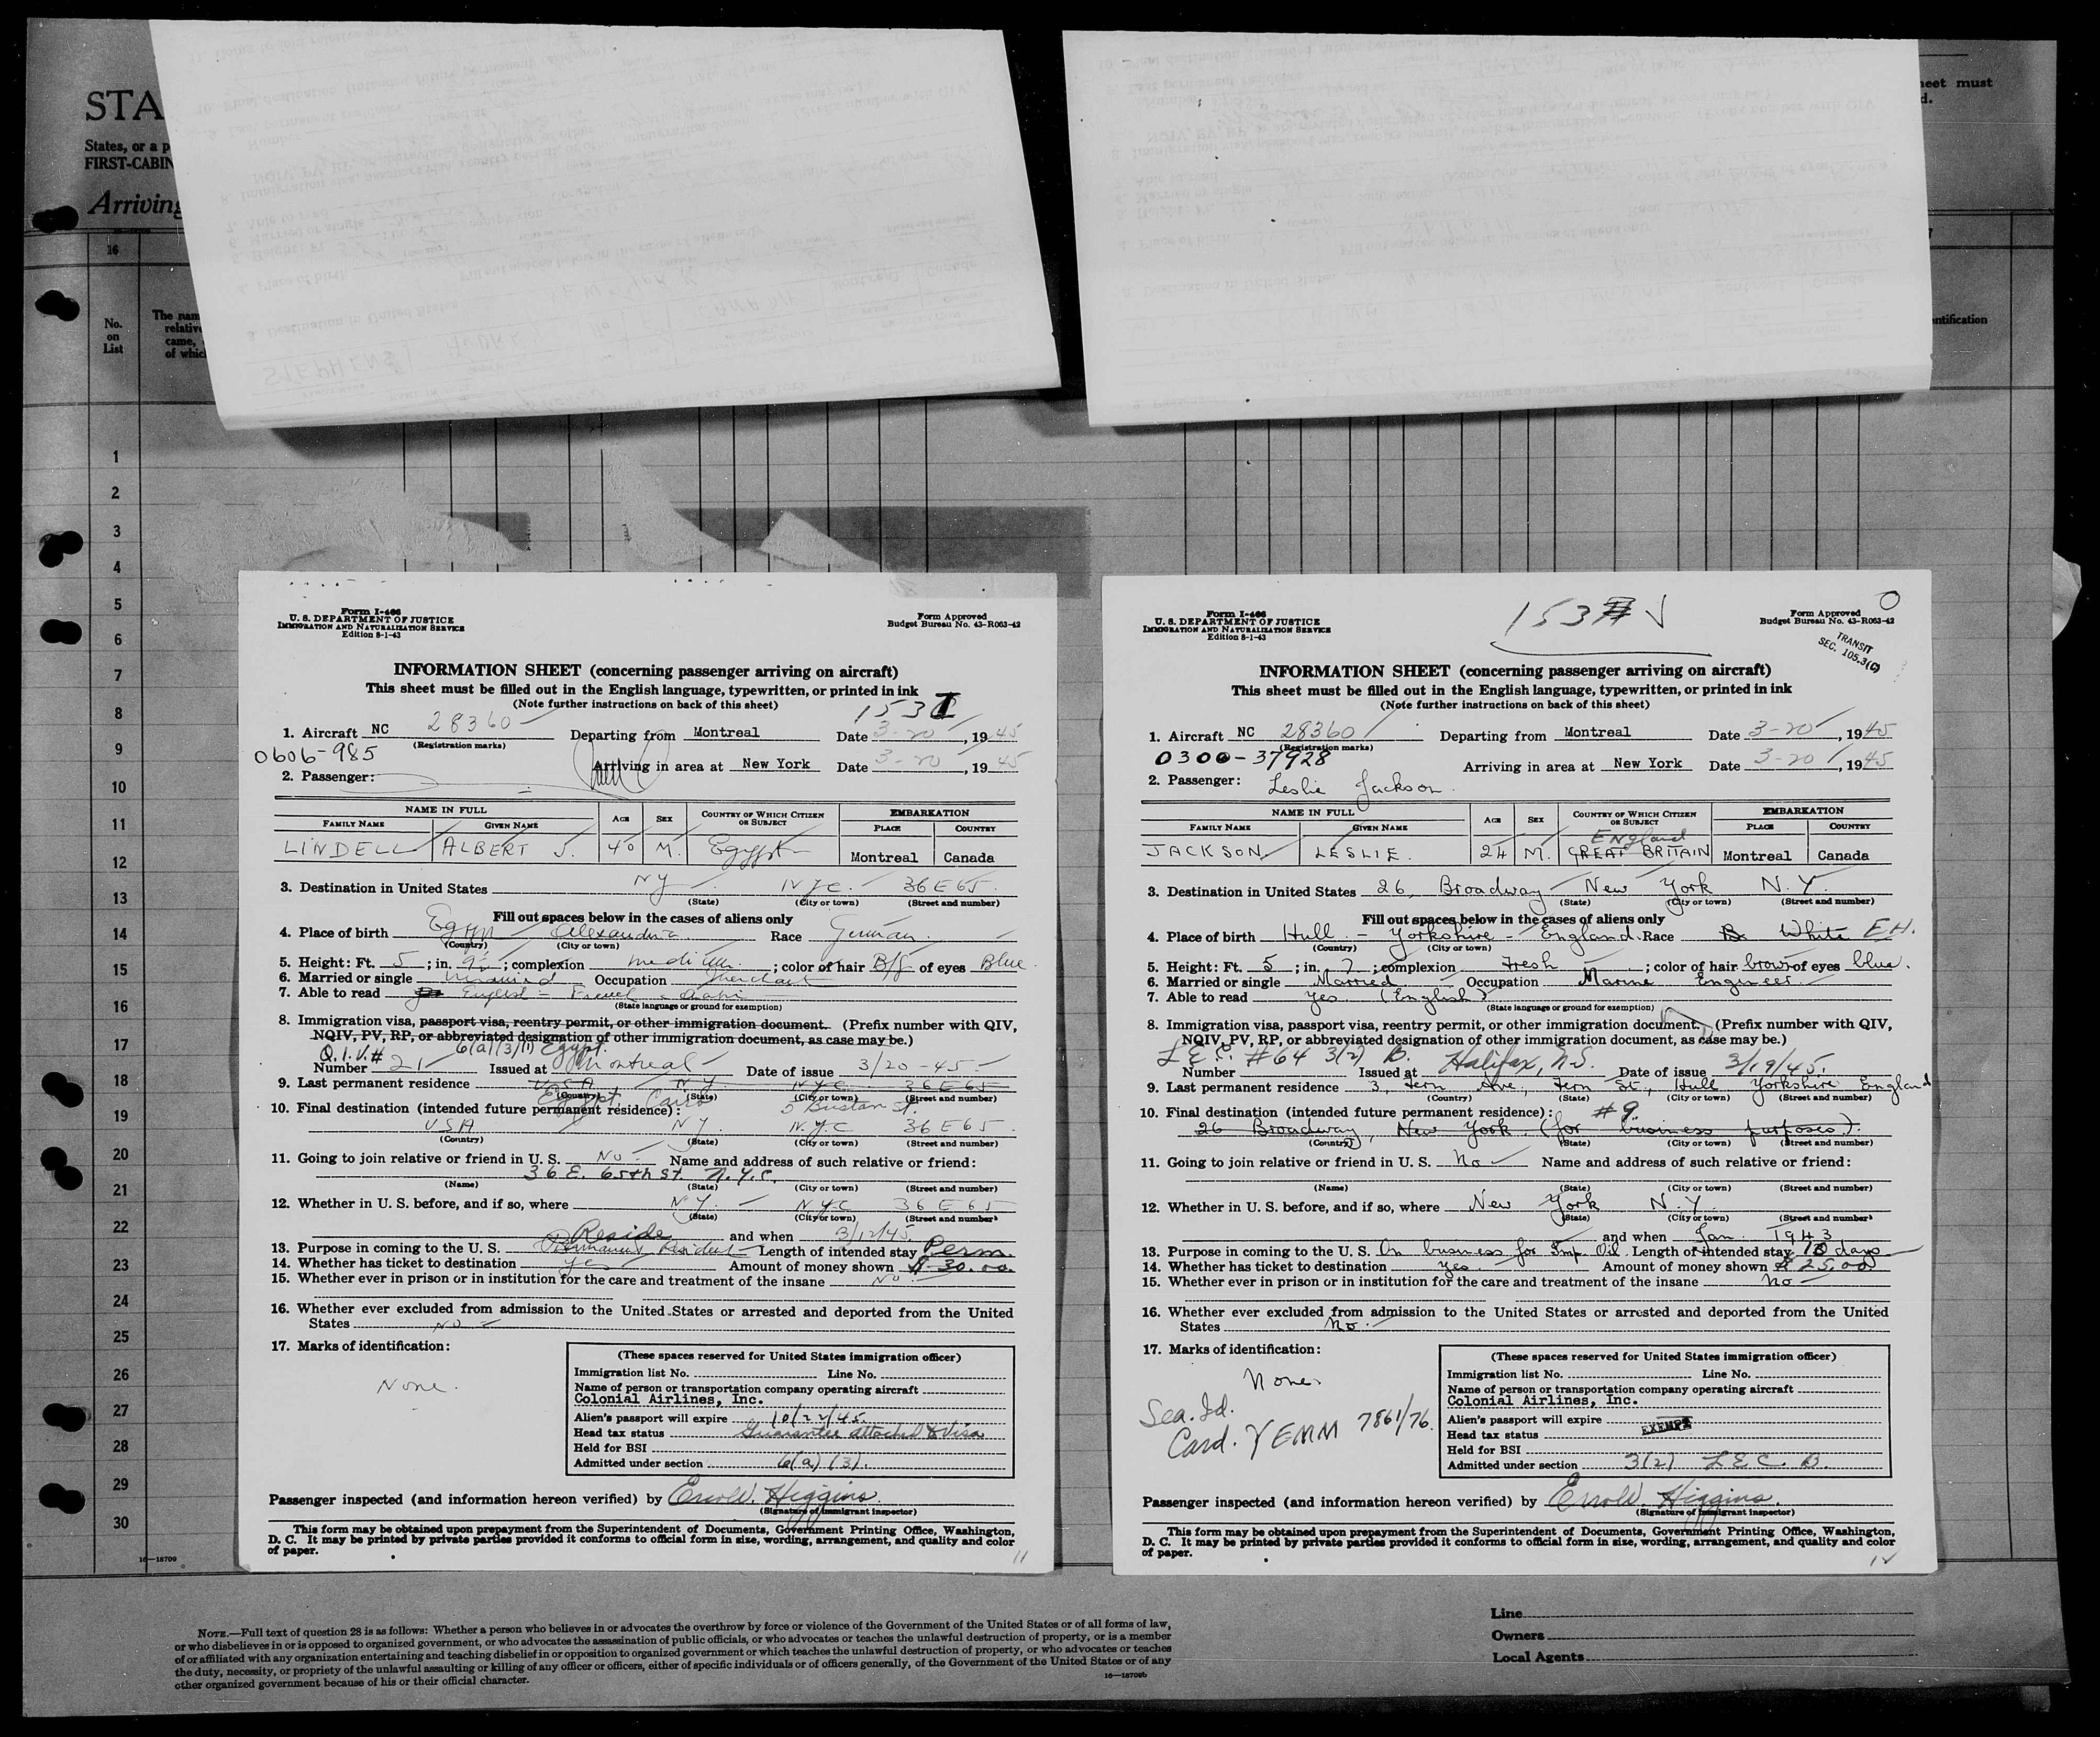 STA
States, or a p
FIRST-CABIN
Arriving
eet must
d.
16
No.
on
List
The nam
relative
came,
of whic
ntification
STEPHENS
1
2
3
4
5
6
7
8
9
10
11
12
13
14
15
16
17
18
19
20
21
22
23
24
25
26
27
28
29
30
16—18709
Form I-466
U. S. DEPARTMENT OF JUSTICE
IMMIGRATION AND NATURALIZATION SERVICE
Edition 8-1-43
Form Approved
Budget Bureau No. 43-R063-42
INFORMATION SHEET (concerning passenger arriving on aircraft)
This sheet must be filled out in the English language, typewritten, or printed in ink
(Note further instructions on back of this sheet)
1. Aircraft NC 28360 Departing from Montreal Date 3-20, 1945
(Registration marks)
0606-985
Arriving in area at New York Date 3-20, 1945
2. Passenger:
NAME IN FULL AGE SEX COUNTRY OF WHICH CITIZEN OR SUBJECT EMBARKATION
FAMILY NAME GIVEN NAME PLACE COUNTRY
LINDELL ALBERT J. 40 M. Egypt Montreal Canada
3. Destination in United States NY NYC. 36 E 65.
(State) (City or town) (Street and number)
Fill out spaces below in the cases of aliens only
4. Place of birth Egypt Alexandria Race German.
(Country) (City or town)
5. Height: Ft. 5; in. 9½; complexion medium; color of hair B/G of eyes Blue.
6. Married or single Occupation Merchant
7. Able to read English - French - Arabic
(State language or ground for exemption)
8. Immigration visa, passport visa, reentry permit, or other immigration document. (Prefix number with QIV,
NQIV, PV, RP, or abbreviated designation of other immigration document, as case may be.)
Q.I.V.# 6(a)(3)(1) Egypt.
Number 21 Issued at Montreal Date of issue 3/20-45
9. Last permanent residence USA NY. NYC 36 E 65
(Country) (State) (City or town) (Street and number)
Egypt, Cairo 5 Bustan St.
10. Final destination (intended future permanent residence):
USA NY. N.Y.C 36 E 65.
(Country) (State) (City or town) (Street and number)
11. Going to join relative or friend in U. S. No Name and address of such relative or friend:
36 E. 65th St. N.Y.C.
(Name) (State) (City or town) (Street and number)
12. Whether in U. S. before, and if so, where N.Y. NYC 36 E 65
(State) (City or town) (Street and number)
and when 3/12/45.
Reside
13. Purpose in coming to the U. S. Permanent Resident Length of intended stay Perm.
14. Whether has ticket to destination yes Amount of money shown $ 30.00.
15. Whether ever in prison or in institution for the care and treatment of the insane No
16. Whether ever excluded from admission to the United States or arrested and deported from the United
States NO
17. Marks of identification:
None.
(These spaces reserved for United States immigration officer)
Immigration list No. Line No.
Name of person or transportation company operating aircraft
Colonial Airlines, Inc.
Alien's passport will expire 10/22/45.
Head tax status Guarantee attached & visa
Held for BSI
Admitted under section 6(a)(3).
Passenger inspected (and information hereon verified) by Errol W. Higgins.
(Signature of immigrant inspector)
This form may be obtained upon prepayment from the Superintendent of Documents, Government Printing Office, Washington,
D. C. It may be printed by private parties provided it conforms to official form in size, wording, arrangement, and quality and color
of paper.
11
Form I-466
U. S. DEPARTMENT OF JUSTICE
IMMIGRATION AND NATURALIZATION SERVICE
Edition 8-1-43
Form Approved
Budget Bureau No. 43-R063-42
TRANSIT
SEC. 105.3(C)
INFORMATION SHEET (concerning passenger arriving on aircraft)
This sheet must be filled out in the English language, typewritten, or printed in ink
(Note further instructions on back of this sheet)
1. Aircraft NC 28360 Departing from Montreal Date 3-20, 1945
(Registration marks)
0300-37928
Arriving in area at New York Date 3-20, 1945
2. Passenger: Leslie Jackson.
NAME IN FULL AGE SEX COUNTRY OF WHICH CITIZEN OR SUBJECT EMBARKATION
FAMILY NAME GIVEN NAME PLACE COUNTRY
England
JACKSON LESLIE. 24 M. GREAT BRITAIN Montreal Canada
3. Destination in United States 26, Broadway New York N.Y.
(State) (City or town) (Street and number)
Fill out spaces below in the cases of aliens only
4. Place of birth Hull - Yorkshire - England. Race White EH.
(Country) (City or town)
5. Height: Ft. 5; in. 7; complexion Fresh; color of hair brown of eyes blue.
6. Married or single Married Occupation Marine Engineer.
7. Able to read Yes (English)
(State language or ground for exemption)
8. Immigration visa, passport visa, reentry permit, or other immigration document. (Prefix number with QIV,
NQIV, PV, RP, or abbreviated designation of other immigration document, as case may be.)
L.E.C. #64 3(2) B.
Number Issued at Halifax, N.S. Date of issue 3/19/45.
9. Last permanent residence 3, Fern Ave, Fern St., Hull Yorkshire England
(Country) (State) (City or town) (Street and number)
10. Final destination (intended future permanent residence): #9.
26 Broadway, New York. (for business purposes).
(Country) (State) (City or town) (Street and number)
11. Going to join relative or friend in U. S. No Name and address of such relative or friend:
(Name) (State) (City or town) (Street and number)
12. Whether in U. S. before, and if so, where New York N.Y.
(State) (City or town) (Street and number)
and when Jan. 1943
13. Purpose in coming to the U. S. On business for Imp. Oil. Length of intended stay 10 days
14. Whether has ticket to destination Yes. Amount of money shown $ 25.00
15. Whether ever in prison or in institution for the care and treatment of the insane No
16. Whether ever excluded from admission to the United States or arrested and deported from the United
States No.
17. Marks of identification:
None
Sea. Id.
Card. YEMM 7861/76.
(These spaces reserved for United States immigration officer)
Immigration list No. Line No.
Name of person or transportation company operating aircraft
Colonial Airlines, Inc.
Alien's passport will expire
EXEMPT
Head tax status
Held for BSI
Admitted under section 3(2) L.E.C. B.
Passenger inspected (and information hereon verified) by Errol W. Higgins.
(Signature of immigrant inspector)
This form may be obtained upon prepayment from the Superintendent of Documents, Government Printing Office, Washington,
D. C. It may be printed by private parties provided it conforms to official form in size, wording, arrangement, and quality and color
of paper.
12
NOTE.—Full text of question 28 is as follows: Whether a person who believes in or advocates the overthrow by force or violence of the Government of the United States or of all forms of law,
or who disbelieves in or is opposed to organized government, or who advocates the assassination of public officials, or who advocates or teaches the unlawful destruction of property, or is a member
of or affiliated with any organization entertaining and teaching disbelief in or opposition to organized government or which teaches the unlawful destruction of property, or who advocates or teaches
the duty, necessity, or propriety of the unlawful assaulting or killing of any officer or officers, either of specific individuals or of officers generally, of the Government of the United States or of any
other organized government because of his or their official character.
16—18709b
Line
Owners
Local Agents